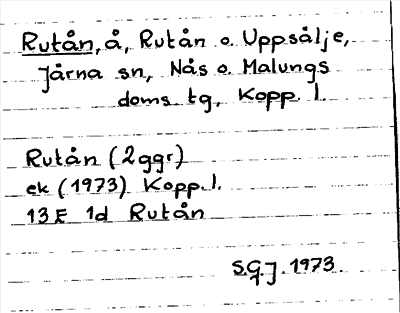 Rutån, å, Rutån o. Uppsålje,
Järna sn, Nås o. Malungs
doms. tg, Kopp. l.
Rutån (2 ggr)
ek (1973) Kopp. l.
13 E 1d Rutån
S.G.J. 1973